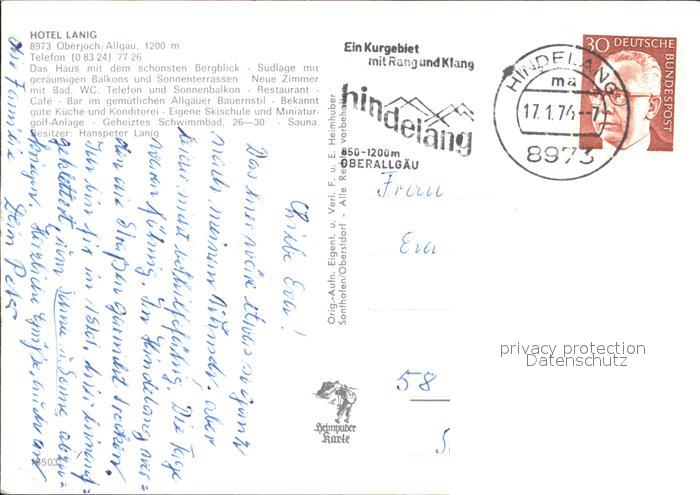 HOTEL LANIG
8973 Oberjoch/Allgäu, 1200 m
Telefon (0 83 24) 77 26
Das Haus mit dem schönsten Bergblick - Südlage mit
geräumigen Balkons und Sonnenterrassen - Neue Zimmer
mit Bad, WC, Telefon und Sonnenbalkon - Restaurant -
Café - Bar im gemütlichen Allgäuer Bauernstil - Bekannt
gute Küche und Konditorei - Eigene Skischule und Miniatur-
golf-Anlage - Geheiztes Schwimmbad, 26—30 - Sauna.
Besitzer: Hanspeter Lanig
Ein Kurgebiet
mit Rang und Klang
hindelang
850-1200m
OBERALLGÄU
HINDELANG
ma
17.1.74-7
8973
30 DEUTSCHE
BUNDESPOST
Orig.-Aufn. Eigent. u. Verl. F. u. E. Heimhuber
Sonthofen/Oberstdorf - Alle Rechte vorbehalten
Frau
Eva
58
S.
privacy protection
Datenschutz
Heimhuber
Karte
Liebe Eva!
Das hier wäre etwas so ganz
nach meinem aber
Die Tage
waren In Hindelang
die Straßen garnicht trocken.
Ich bin
geklettert, um Sonne
Herzliche Grüße, auch an
die Familie Dein Peter